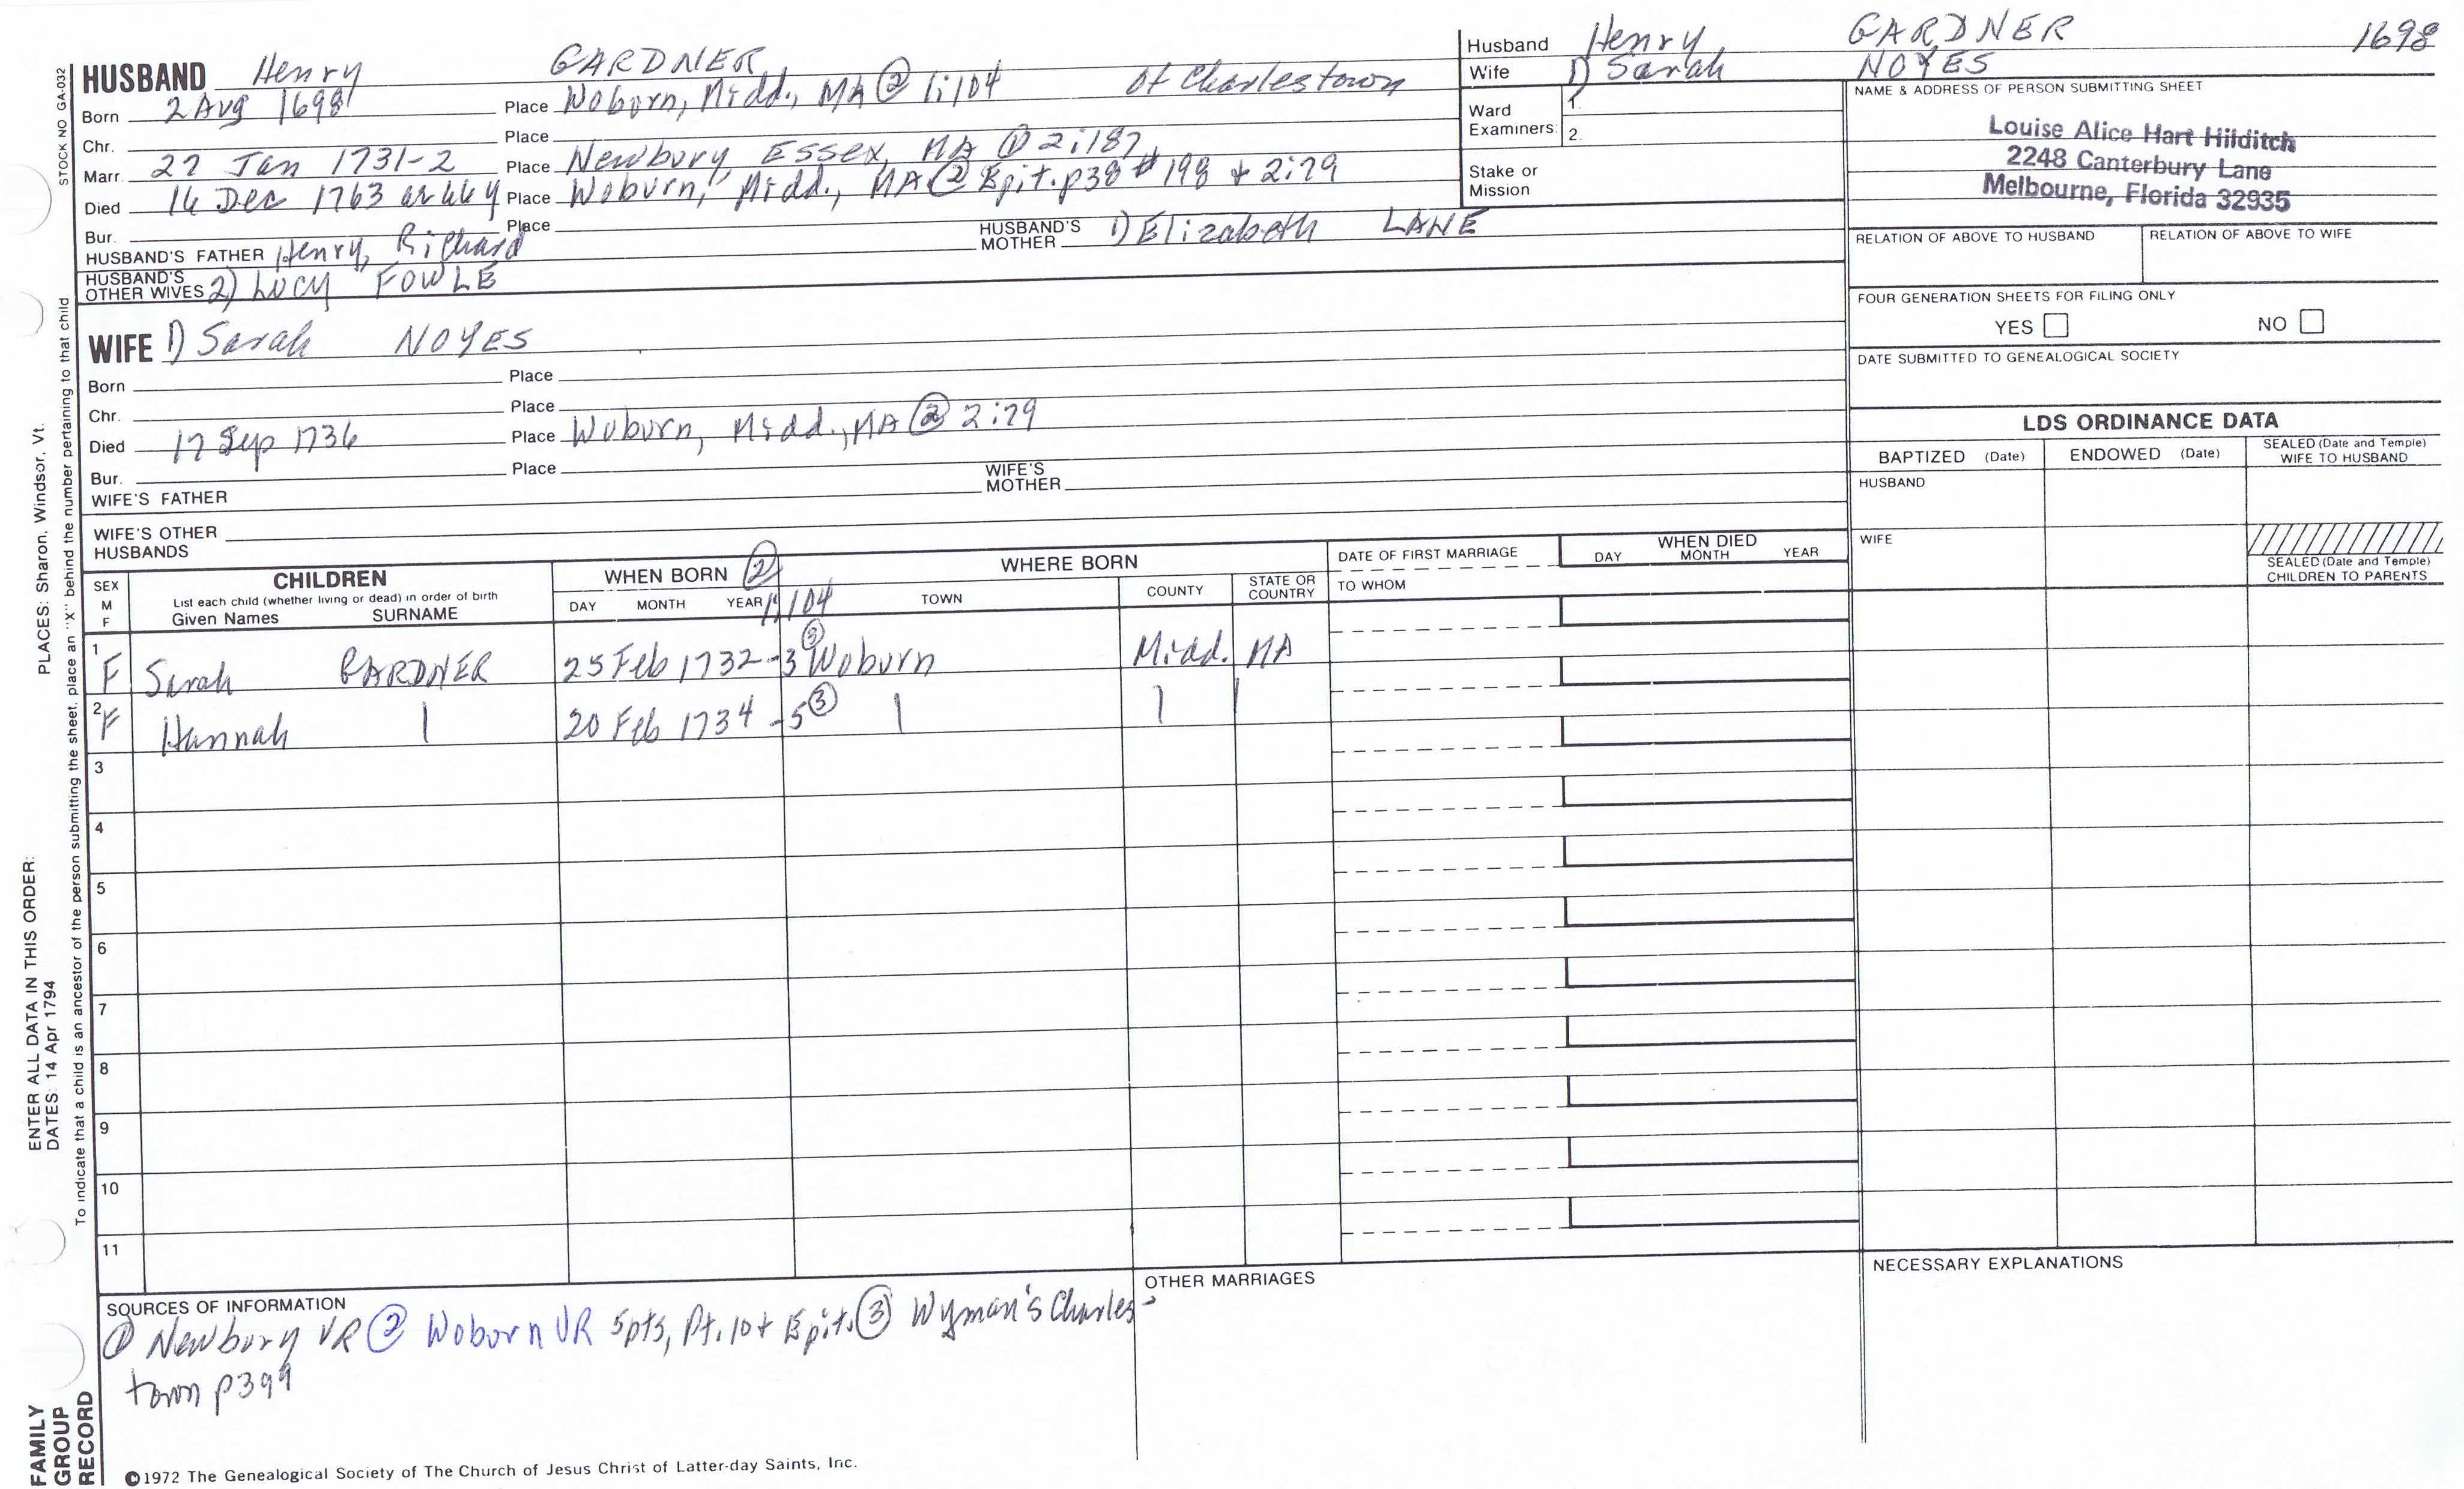 Husband Henry GARDNER 1698
Wife 1) Sarah NOYES
HUSBAND Henry GARDNER
Born 2 Aug 1698 Place Woburn, Midd., MA ② 1:104 of Charlestown
Chr. Place
Marr. 27 Jan 1731-2 Place Newbury, Essex, MA ① 2:187
Died 16 Dec 1763 or Place Woburn, Midd., MA ② Epit. p38 #198 + 2:79
Bur. Place
HUSBAND'S FATHER Henry, Richard HUSBAND'S MOTHER 1) Elizabeth LANE
HUSBAND'S OTHER WIVES 2) Lucy FOWLE
Ward
Examiners: 1.
2.
Stake or
Mission
NAME & ADDRESS OF PERSON SUBMITTING SHEET
Louise Alice Hart Hilditch
2248 Canterbury Lane
Melbourne, Florida 32935
RELATION OF ABOVE TO HUSBAND RELATION OF ABOVE TO WIFE
FOUR GENERATION SHEETS FOR FILING ONLY
YES NO
DATE SUBMITTED TO GENEALOGICAL SOCIETY
WIFE 1) Sarah NOYES
Born Place
Chr. Place
Died 17 Sep 1736 Place Woburn, Midd., MA ② 2:79
Bur. Place
WIFE'S FATHER WIFE'S MOTHER
WIFE'S OTHER
HUSBANDS
LDS ORDINANCE DATA
BAPTIZED (Date) ENDOWED (Date) SEALED (Date and Temple) WIFE TO HUSBAND
HUSBAND
WIFE
SEALED (Date and Temple)
CHILDREN TO PARENTS
SEX M F CHILDREN WHEN BORN ② WHERE BORN DATE OF FIRST MARRIAGE WHEN DIED
List each child (whether living or dead) in order of birth
Given Names SURNAME DAY MONTH YEAR 1:104 TOWN COUNTY STATE OR COUNTRY TO WHOM DAY MONTH YEAR
1 F Sarah GARDNER 25 Feb 1732-3 ③ Woburn Midd. MA
2 F Hannah | 20 Feb 1734-5 ③ | | |
3
4
5
6
7
8
9
10
11
SOURCES OF INFORMATION
① Newbury VR ② Woburn VR 5pts, Pt. 10+ Epit. ③ Wyman's Charles-
town p399
OTHER MARRIAGES
NECESSARY EXPLANATIONS
©1972 The Genealogical Society of The Church of Jesus Christ of Latter-day Saints, Inc.
FAMILY
GROUP
RECORD
ENTER ALL DATA IN THIS ORDER: PLACES: Sharon, Windsor, Vt.
DATES: 14 Apr 1794
To indicate that a child is an ancestor of the person submitting the sheet, place an "X" behind the number pertaining to that child
STOCK NO GA-032